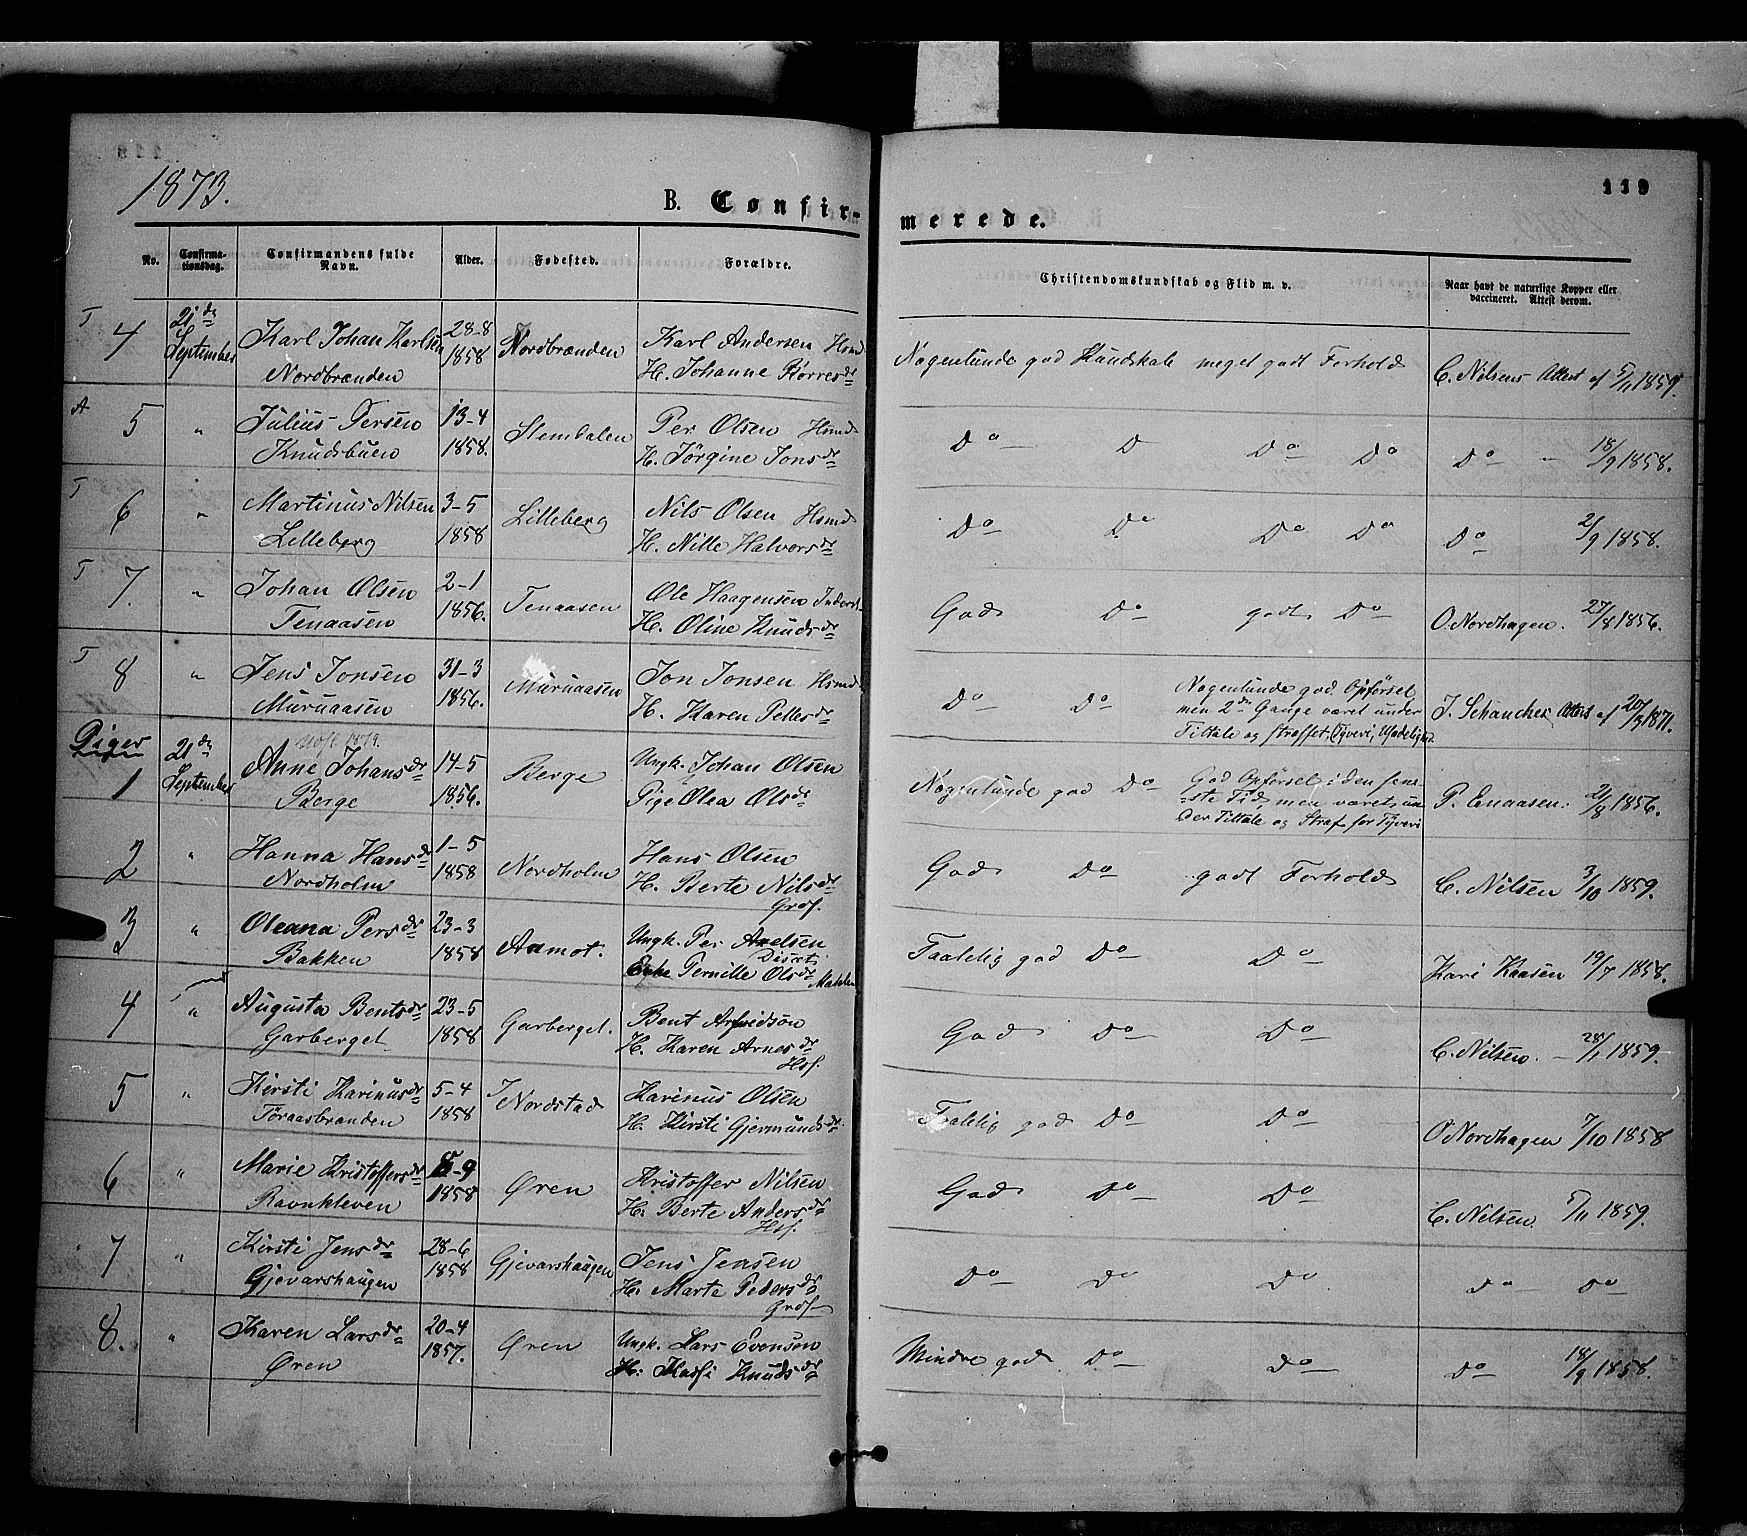 1873.
119
B. Confir-
merede.
No.
Confirma-
tionsdag.
Confirmandens fulde
Navn.
Alder.
Fødested.
Forældre.
Christendomskundskab og Flid m. v.
Naar havt de naturlige Kopper eller
vaccineret. Attest derom.
T 4 21de September Karl Johan Karlsen 28-8 1858 Nordbrænden Karl Andersen Hsmd
Nordbrænden H. Johanne Börresdr
Nogenlunde god Kundskab meget godt Forhold C. Nilsens Attest af 5/11 1859.
A 5 " Julius Persen 13-4 1858. Stemdalen Per Olsen Hsmd
Knudsbuen H. Jörgine Jonsdr
Do D Do Do Do - 18/9 1858.
T 6 " Martinus Nilsen 3-5 1858 Lilleberg Nils Olsen Hsmd
Lilleberg H. Nille Halvorsdr
Do Do Do Do Do 2/9 1858.
T 7. " Johan Olsen 2-1 1856. Tenaasen Ole Haagensen
Tenaasen H. Oline Knudsdr
God Do godt Do O. Nordhagen. 27/8 1856.
T 8 " Jens Jonsen 31-3 1856. Muruaasen Jon Jonsen Hsmd
Muruaasen H. Karen Pellesdr
Do Do Nogenlunde god Opførsel
men 2de Gange været under
Tiltale og straffet, Tyveri, Usædelighed.
J. Schanches Attest af 20/3 1871.
Piger
1 21de September Anne Johansdr 14-5 1856. Berge Ungk. Johan Olsen
Berge Pige Olea Olsdr
Nogenlunde god Do God Opførsel i den sen-
ste Tid, men været un-
der Tiltale og Straf for Tyveri
P. Enaasen: 21/8 1856.
2 " Hanna Hansdr 1-5 1858 Nordholm Hans Olsen
Nordholm H. Berte Nilsdr
Grdf.
God Do godt Forhold C. Nilsen 3/10 1859.
3 " Oleana Persdr 23-3 1858 Aamot. Ungk. Per Axelsen
Bakken Enke Pernille Olsdr
Taalelig god Do Do Kari Kaasen 19/7 1858.
4 " Augusta Bentsdr 23-5 1858 Garberget. Bent Arfvidson
Garberget H. Karen Arnesdr
Hsf.
God Do Do C. Nilsen. - 28/1 1859.
5 " Kirsti Karinusdr 5-4 1858 Nordstad Karinus Olsen
Töraasbrænden H. Kirsti Gjermundsdr.
Taalelig god Do Do O Nordhagen 7/10 1858
6 " Marie Kristoffersdr 5-9 1858 Øren Kristoffer Nilsen
Ravnkleven H. Berte Andersdr
Hsf.
God Do Do C. Nilsen 5/11 1859.
7 " Kirsti Jensdr 28-6 1858 Gjevarshaugen Jens Jensen
Gjevarshaugen H. Marte Pedersdr
Grdf
Do Do Do Do Do
8. " Karen Larsdr 20-4 1857. Øren Ungk. Lars Evensen
Øren H. Kasri Knudsdr
Mindre god Do Do Do 18/9 1858.